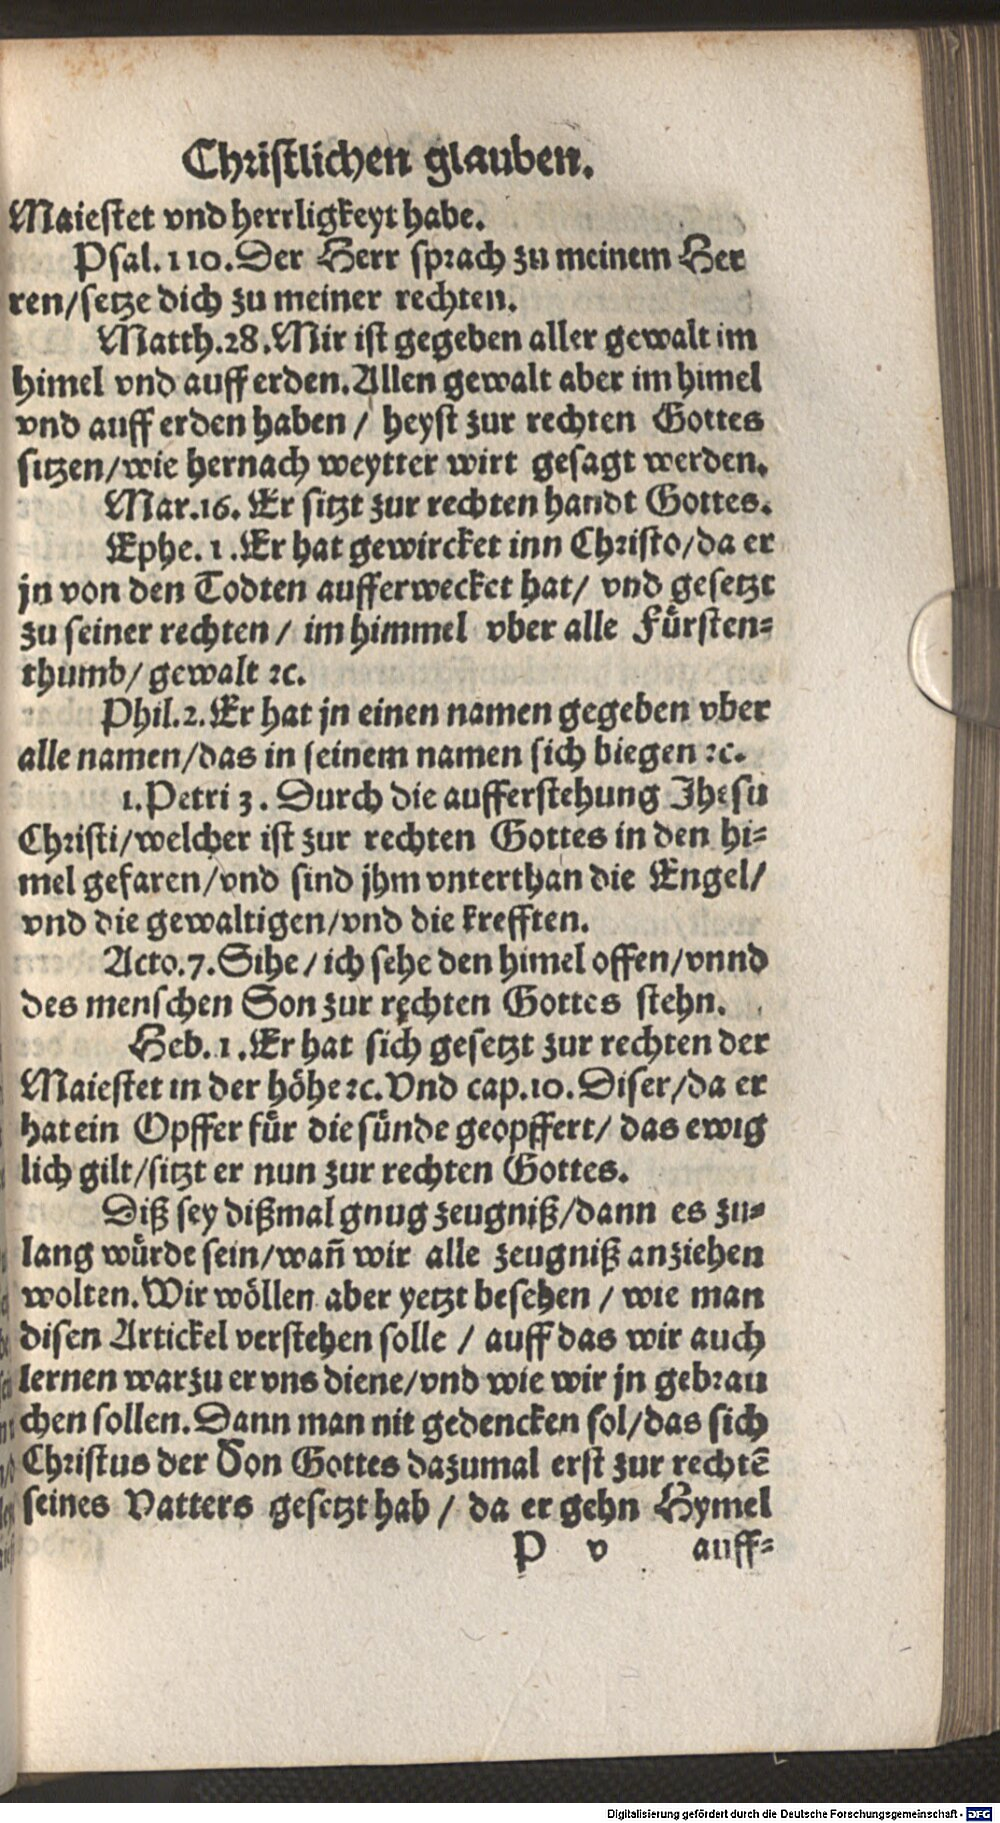 Christlichen glauben.
Maiestet vnd herrligkeyt habe.
Psal. 110. Der Herr sprach zu meinem Her
ren/setze dich zu meiner rechten.
Matth. 28. Mir ist gegeben aller gewalt im
himel vnd auff erden. Allen gewalt aber im himel
vnd auff erden haben / heyst zur rechten Gottes
sitzen/wie hernach weytter wirt gesagt werden.
Mar. 16. Er sitzt zur rechten handt Gottes.
Ephe. 1. Er hat gewircket inn Christo/da er
jn von den Todten aufferwecket hat/ vnd gesetzt
zu seiner rechten / im himmel vber alle Fuͤrsten⸗
thumb/ gewalt ꝛc.
Phil. 2. Er hat jn einen namen gegeben vber
alle namen/das in seinem namen sich biegen ꝛc.
1. Petri 3. Durch die aufferstehung Jhesu
Christi/welcher ist zur rechten Gottes in den hi⸗
mel gefaren/vnd sind jhm vnterthan die Engel/
vnd die gewaltigen/vnd die krefften.
Acto. 7. Sihe / ich sehe den himel offen/vnnd
des menschen Son zur rechten Gottes stehn.
Heb. 1. Er hat sich gesetzt zur rechten der
Maiestet in der hoͤhe ꝛc. Vnd cap. 10. Diser/da er
hat ein Opffer fuͤr die suͤnde geopffert/ das ewig
lich gilt/sitzt er nun zur rechten Gottes.
Diß sey dißmal gnug zeugniß/dann es zu⸗
lang wuͤrde sein/wañ wir alle zeugniß anziehen
wolten. Wir woͤllen aber yetzt besehen / wie man
disen Artickel verstehen solle / auff das wir auch
lernen warzu er vns diene/vnd wie wir jn gebrau
chen sollen. Dann man nit gedencken sol/das sich
Christus der Son Gottes dazumal erst zur rechtē
seines Vatters gesetzt hab / da er gehn Hymel
P v auff⸗
Digitalisierung gefördert durch die Deutsche Forschungsgemeinschaft - DFG